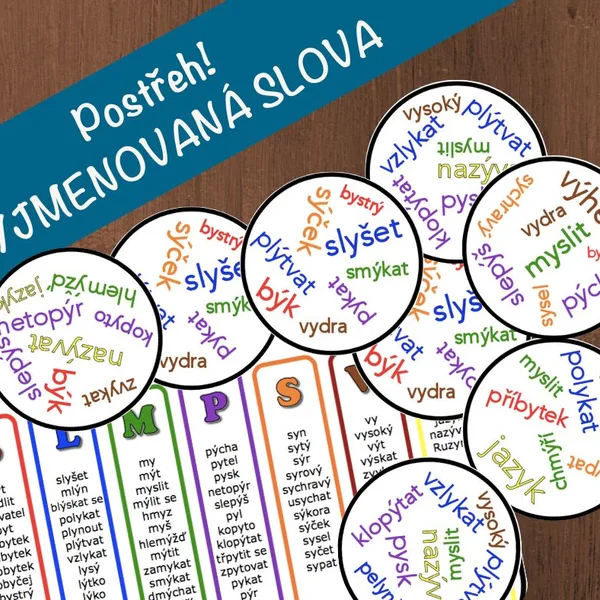 Postřeh!
VYJMENOVANÁ SLOVA
vysoký
plýtvat
vzlykat
myslit
klopýtat
sychravý
vydra
myslit
slepýš
sysel
sýček
bystrý
plýtvat
slyšet
smýkat
býk
pykat
vydra
sýček
bystrý
smýkat
pykat
vydra
hlemýžď
jazyk
netopýr
kopyto
slepýš
nazývat
býk
zvykat
smýkat
býk
vydra
myslit
polykat
příbytek
chmýří
jazyk
klopýtat
vzlykat
vysoký
pysk
myslit
plýtvat
L
M
P
S
V
slyšet
mlýn
blýskat se
polykat
plynout
plýtvat
vzlykat
lysý
lýtko
lýko
my
mýt
myslit
mýlit se
hmyz
myš
hlemýžď
mýtit
zamykat
smýkat
dmýchat
pýcha
pytel
pysk
netopýr
slepýš
pyl
kopyto
klopýtat
třpytit se
zpytovat
pykat
pýr
syn
sytý
sýr
syrový
sychravý
usychat
sýkora
sýček
sysel
syčet
sypat
vy
vysoký
výt
výskat